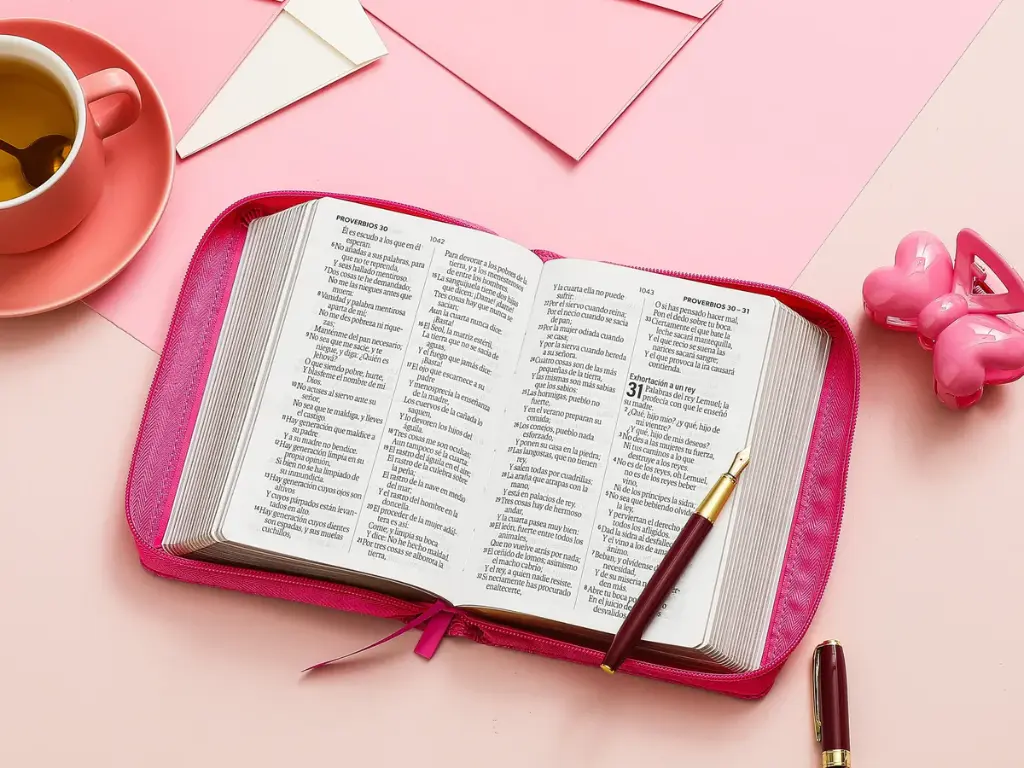 PROVERBIOS 30
1042
Él es escudo a los que en él
esperan.
6No añadas a sus palabras, para
que no te reprenda,
Y seas hallado mentiroso
7Dos cosas te he demandado;
No me las niegues antes que
muera:
8Vanidad y palabra mentirosa
aparta de mí;
No me des pobreza ni rique-
zas;
Manténme del pan necesario;
9No sea que me sacie, y te
niegue, y diga: ¿Quién es
Jehová?
O que siendo pobre, hurte,
Y blasfeme el nombre de mi
Dios.
10No acuses al siervo ante su
señor,
No sea que te maldiga, y lleves
el castigo.
11Hay generación que maldice a
su padre
Y a su madre no bendice.
12Hay generación limpia en su
propia opinión,
Si bien no se ha limpiado de
su inmundicia.
13Hay generación cuyos ojos son
altivos
Y cuyos párpados están levan-
tados en alto.
14Hay generación cuyos dientes
son espadas, y sus muelas
cuchillos,
Para devorar a los pobres de la
tierra, y a los menesterosos
de entre los hombres.
15La sanguijuela tiene dos hijas
que dicen: ¡Dame! ¡dame!
Tres cosas hay que nunca se
sacian;
Aun la cuarta nunca dice:
¡Basta!
16El Seol, la matriz estéril,
La tierra que no se sacia de
aguas,
Y el fuego que jamás dice:
¡Basta!
17El ojo que escarnece a su
padre
Y menosprecia la enseñanza
de la madre,
Los cuervos de la cañada lo
saquen,
Y lo devoren los hijos del
águila.
18Tres cosas me son ocultas;
Aun tampoco sé la cuarta:
19El rastro del águila en el aire;
El rastro de la culebra sobre
la peña;
El rastro de la nave en medio
del mar;
Y el rastro del hombre en la
doncella.
20El proceder de la mujer adúl-
tera es así:
Come, y limpia su boca
Y dice: No he hecho maldad.
21Por tres cosas se alborota la
tierra,
1043
PROVERBIOS 30–31
Y la cuarta ella no puede
sufrir:
22Por el siervo cuando reina;
Por el necio cuando se sacia
de pan;
23Por la mujer odiada cuando
se casa;
Y por la sierva cuando hereda
a su señora.
24Cuatro cosas son de las más
pequeñas de la tierra,
Y las mismas son más sabias
que los sabios:
25Las hormigas, pueblo no
fuerte,
Y en el verano preparan su
comida;
26Los conejos, pueblo nada
esforzado,
Y ponen su casa en la piedra;
27Las langostas, que no tienen
rey,
Y salen todas por cuadrillas;
28La araña que atrapas con la
mano,
Y está en palacios de rey.
29Tres cosas hay de hermoso
andar,
Y la cuarta pasea muy bien:
30El león, fuerte entre todos los
animales,
Que no vuelve atrás por nada;
31El ceñido de lomos; asimismo
el macho cabrío;
Y el rey, a quien nadie resiste.
32Si neciamente has procurado
enaltecerte,
O si has pensado hacer mal,
Pon el dedo sobre tu boca.
33Certamente el que bate la
leche sacará mantequilla,
Y el que recio se suena las
narices sacará sangre;
Y el que provoca la ira causará
contienda.
Exhortación a un rey
31 Palabras del rey Lemuel; la
profecía con que le enseñó
su madre.
2¿Qué, hijo mío? ¿y qué, hijo de
mi vientre?
¿Y qué, hijo de mis deseos?
3No des a las mujeres tu fuerza,
Ni tus caminos a lo que
destruye a los reyes.
4No es de los reyes, oh Lemuel,
no es de los reyes beber
vino,
Ni de los príncipes la sidra;
5No sea que bebiendo olviden
la ley,
Y perviertan el derecho
todos los afligidos.
6Dad la sidra al desfallecido
Y el vino a los de amargado
ánimo.
7Beban, y olvídense de
necesidad,
Y de su miseria no
den más.
8Abre tu boca por
En el juicio de
desvalidos